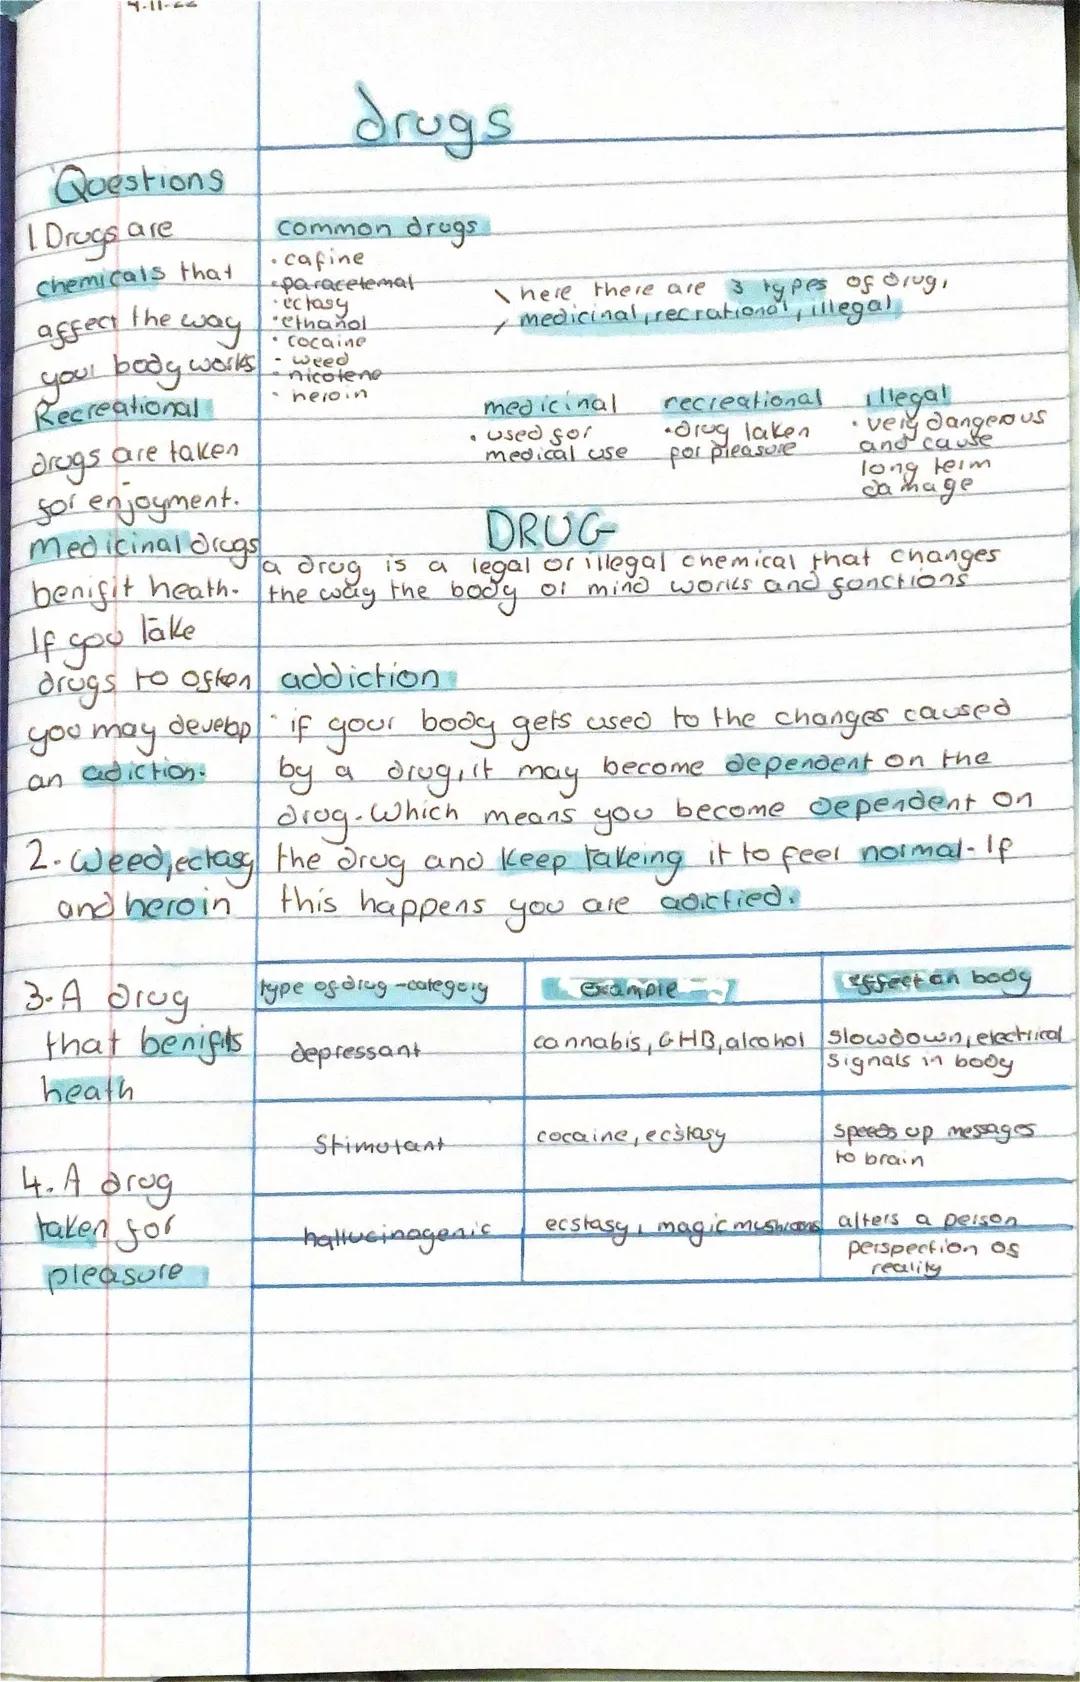 4-11-22
drugs
Questions
1 Drugs are
chemicals that
affect the way
your body works
Recreational
drugs are taken
for enjoyment.
medicinal drugs
benifit heath.
If you take
drugs to often
you may develop
an adiction.
2. Weed, ectasy
and heroin
3. A drug
that benifits
heath
4. A drug
taken for
pleasure
common drugs
• cafine
• paracetemal
• ectasy
• ethanol
• cocaine
- weed
- nicotene
• heroin
here there are 3 types of drug,
medicinal, recrational, illegal
medicinal
• used for
medical use
recreational
• drug taken
for pleasure
illegal
• very dangerous
and cause
long term
damage
DRUG
a drug is a legal or illegal chemical that changes
the way the body or mind works and fonctions
addiction
• if your body gets used to the changes caused
by a drug, it may become dependent on the
drug. Which means you become dependent on
the drug and keep takeing it to feel normal. If
this happens you are adictied.
type of drug - category example effect on body
depressant cannabis, GHB, alcohol slowdown, electrical
signals in body
Stimutant cocaine, ecstasy speeds up messages
to brain
hallucinogenic ecstasy, magic mushrooms alters a person
perspection of
reality